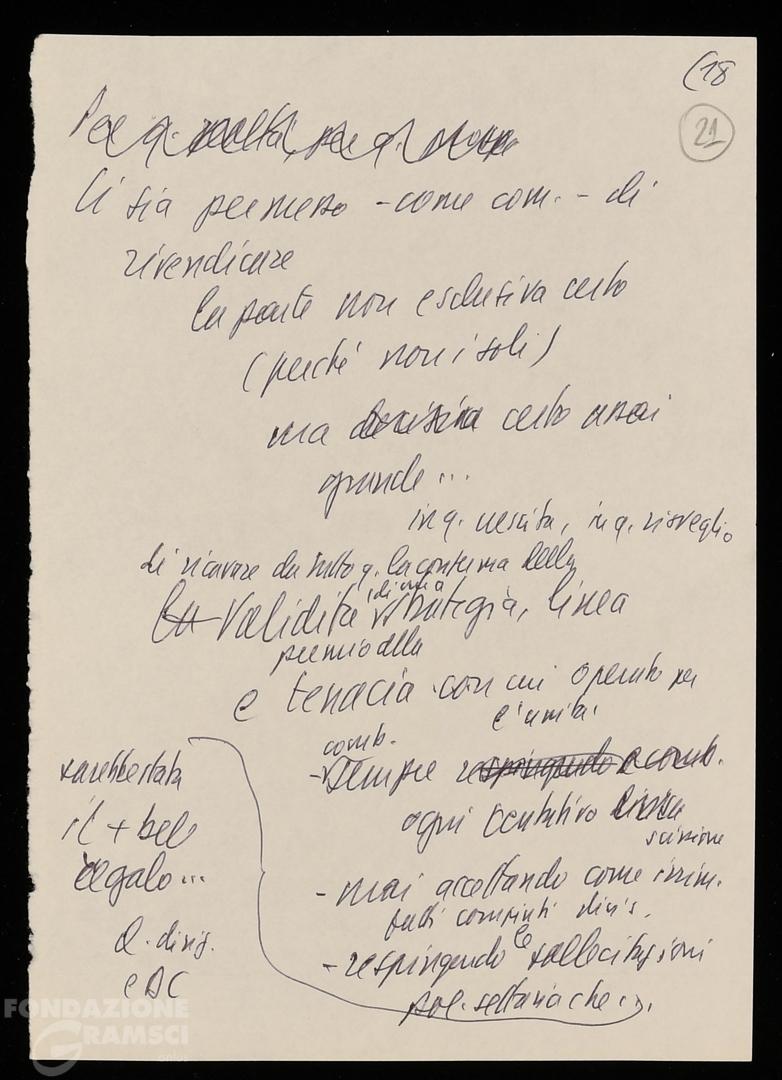 (18
21
Per q. realtà, per q.
Ci sia permesso - come com. - di
rivendicare
la parte non esclusiva certo
(perché non i soli)
ma decisiva certo assai
grande...
in q. nascita, in q. risveglio
di ricavare da tutto q. la conferma della
la validità di una strategia, linea
premio alla
e tenacia con cui operato per
l'unità
comb.
- sempre respingendo e comb.
ogni tentativo
scissione
- mai accettando come irrim.
fatti compiuti divis.
- respingendo le sollecitazioni
pol. settaria che ...
sarebbe stata
il + bel
regalo...
a. dirig.
e DC
FONDAZIONE
GRAMSCI
onlus